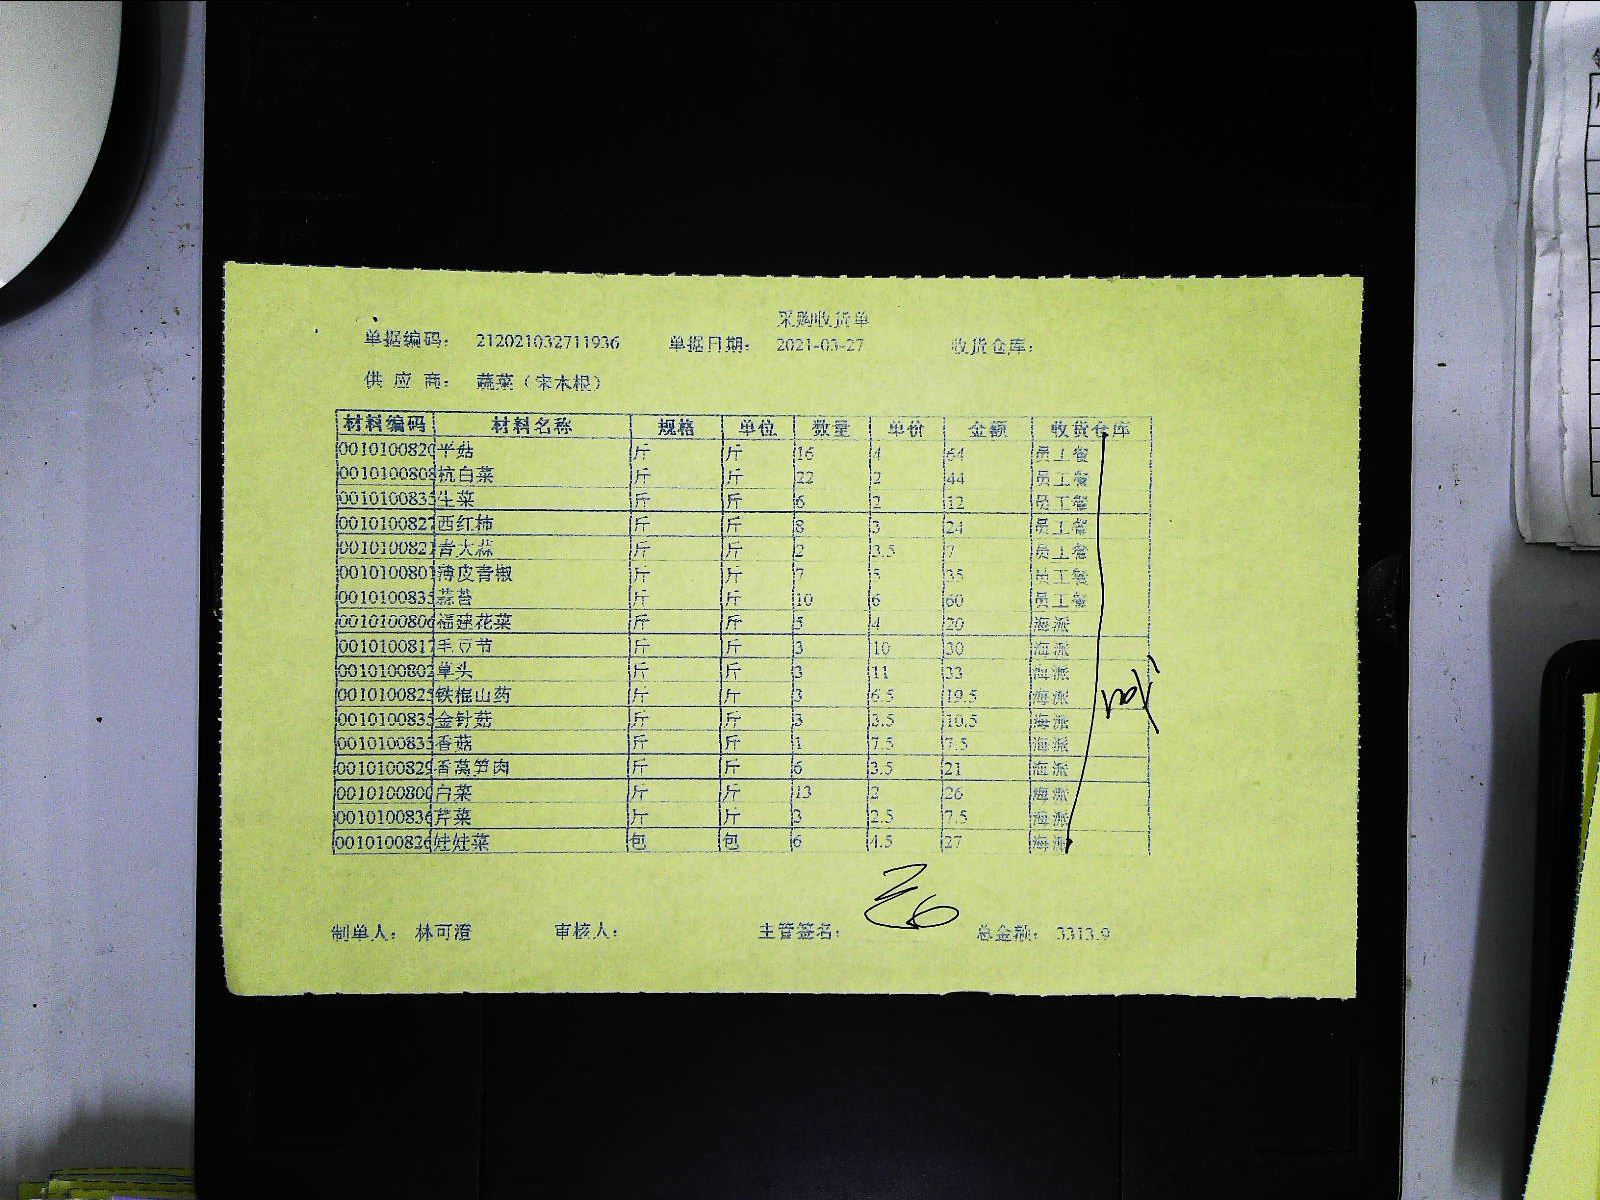 采购收货单
单据编码： 212021032711936 单据日期： 2021-03-27 收货仓库：
供 应 商： 蔬菜（宋木根）
材料编码 材料名称 规格 单位 数量 单价 金额 收货仓库
0010100820 平菇 斤 斤 16 4 64 员工餐
0010100808 杭白菜 斤 斤 22 2 44 员工餐
0010100835 生菜 斤 斤 6 2 12 员工餐
0010100827 西红柿 斤 斤 8 3 24 员工餐
0010100821 青大蒜 斤 斤 2 3.5 7 员工餐
0010100801 薄皮青椒 斤 斤 7 5 35 员工餐
0010100835 蒜苔 斤 斤 10 6 60 员工餐
0010100806 福建花菜 斤 斤 5 4 20 海派
0010100817 毛豆节 斤 斤 3 10 30 海派
0010100802 草头 斤 斤 3 11 33 海派
0010100825 铁棍山药 斤 斤 3 6.5 19.5 海派
0010100835 金针菇 斤 斤 3 3.5 10.5 海派
0010100835 香菇 斤 斤 1 7.5 7.5 海派
0010100829 香莴笋肉 斤 斤 6 3.5 21 海派
0010100800 白菜 斤 斤 13 2 26 海派
0010100836 芹菜 斤 斤 3 2.5 7.5 海派
0010100826 娃娃菜 包 包 6 4.5 27 海派
制单人： 林可澄 审核人： 主管签名： 总金额： 3313.9